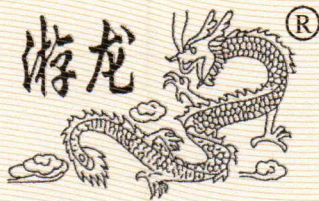 游龙 ®